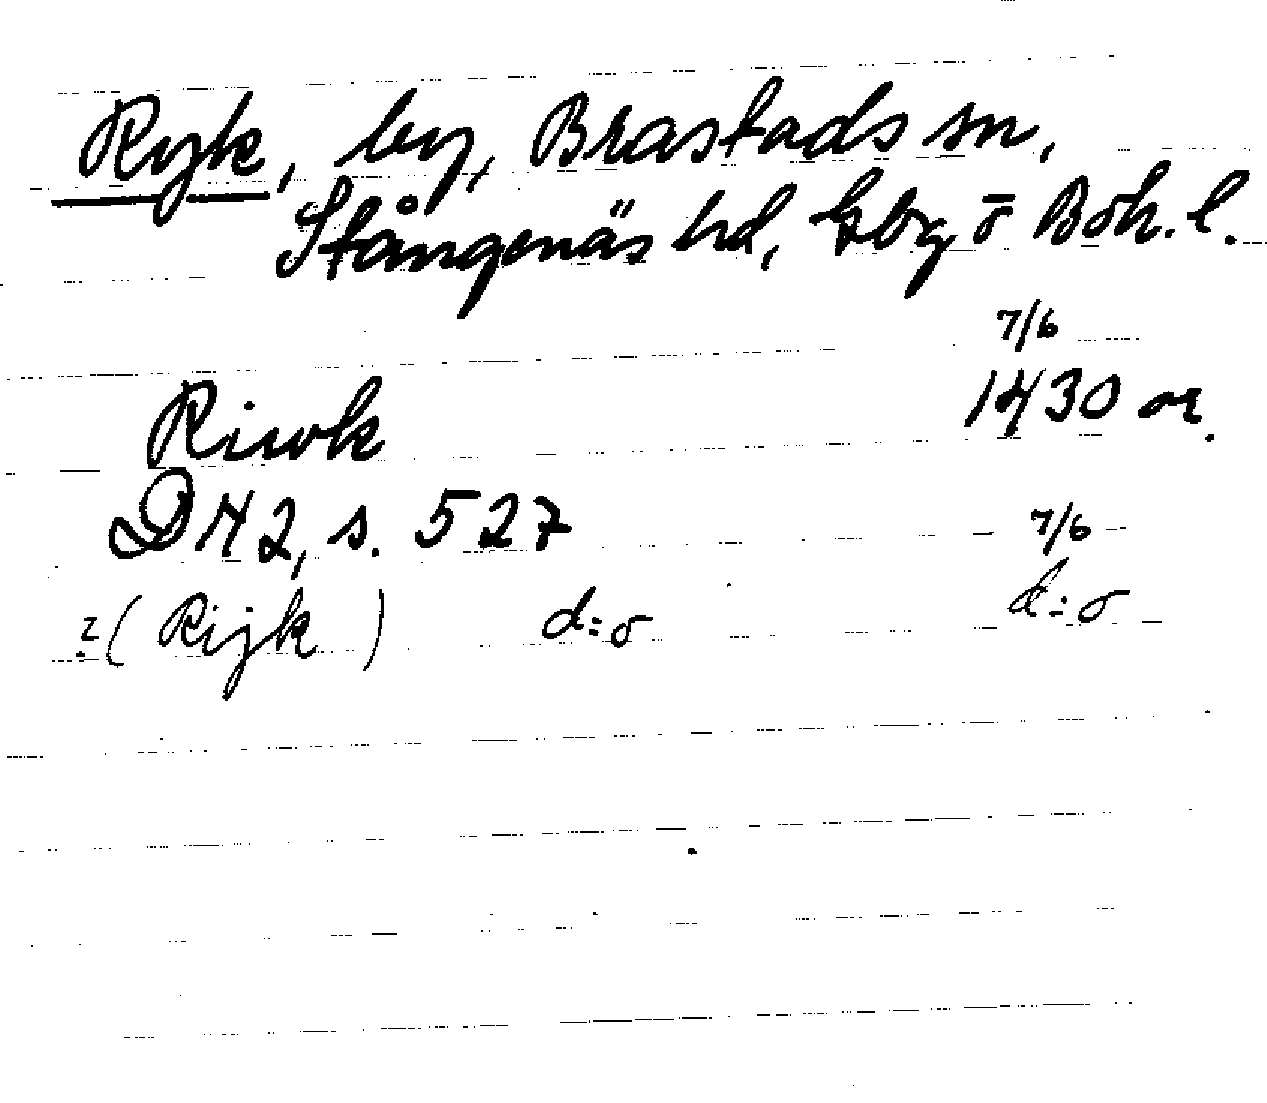 Ryk, by, Brastads sn,
Stångenäs hd, Gbg ō Boh. l.
7/6
Riwk 1430 or.
DN 2, s. 527 7/6
? (Rijk) d:o d:o